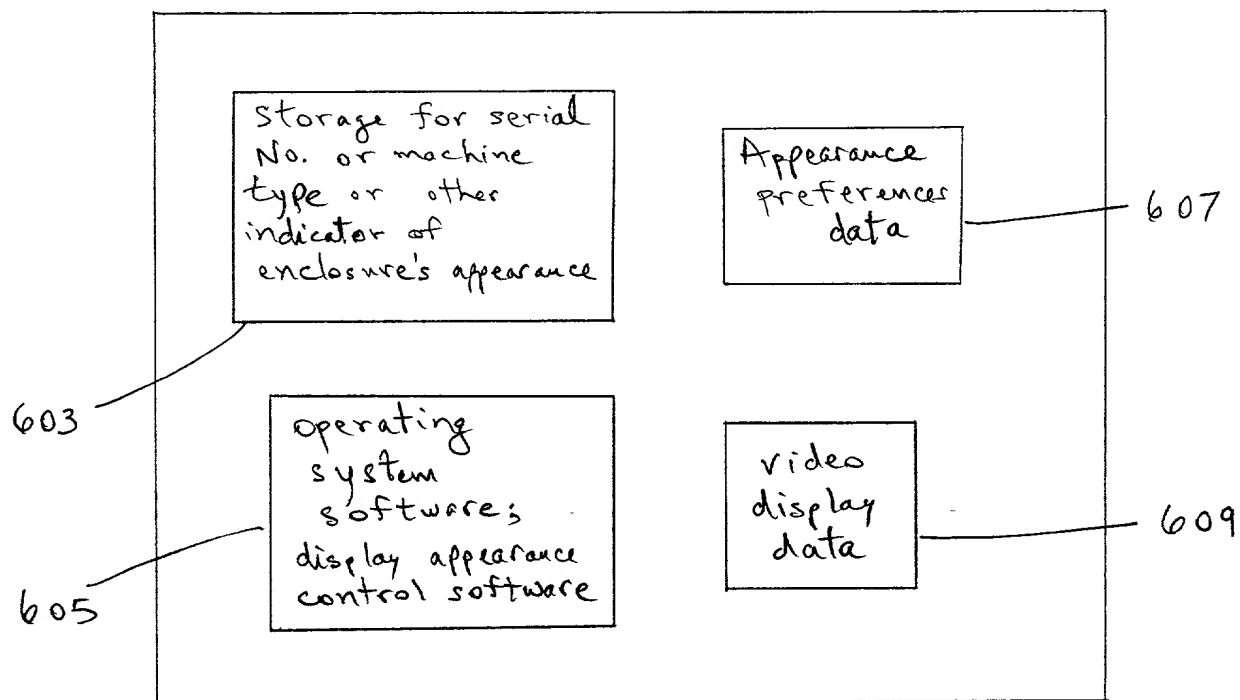 Storage for serial
No. or machine
type or other
indicator of
enclosure's appearance
Appearance
preferences
data
607
603
operating
system
software;
display appearance
control software
video
display
data
609
605